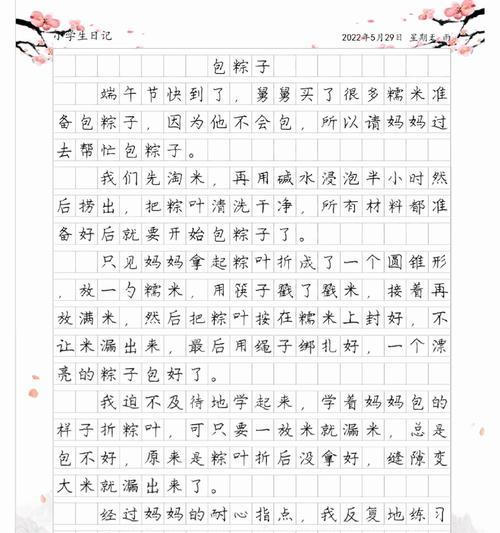 小学生日记
2022年5月29日 星期五 雨
包粽子
端午节快到了，舅舅买了很多糯米准
备包粽子，因为他不会包，所以请妈妈过
去帮忙包粽子。
我们先淘米，再用碱水浸泡半小时然
后捞出，把粽叶清洗干净，所有材料都准
备好后就要开始包粽子了。
只见妈妈拿起粽叶折成了一个圆锥形
，放一勺糯米，用筷子戳了戳米，接着再
放满米，然后把粽叶按在糯米上封好，不
让米漏出来，最后用绳子绑扎好，一个漂
亮的粽子包好了。
我迫不及待地学起来，学着妈妈包的
样子折粽叶，可只要一放米就漏米，总是
包不好，原来是粽叶折后没拿好，缝隙变
大米就漏出来了。
经过妈妈的耐心指点，我反复地练习